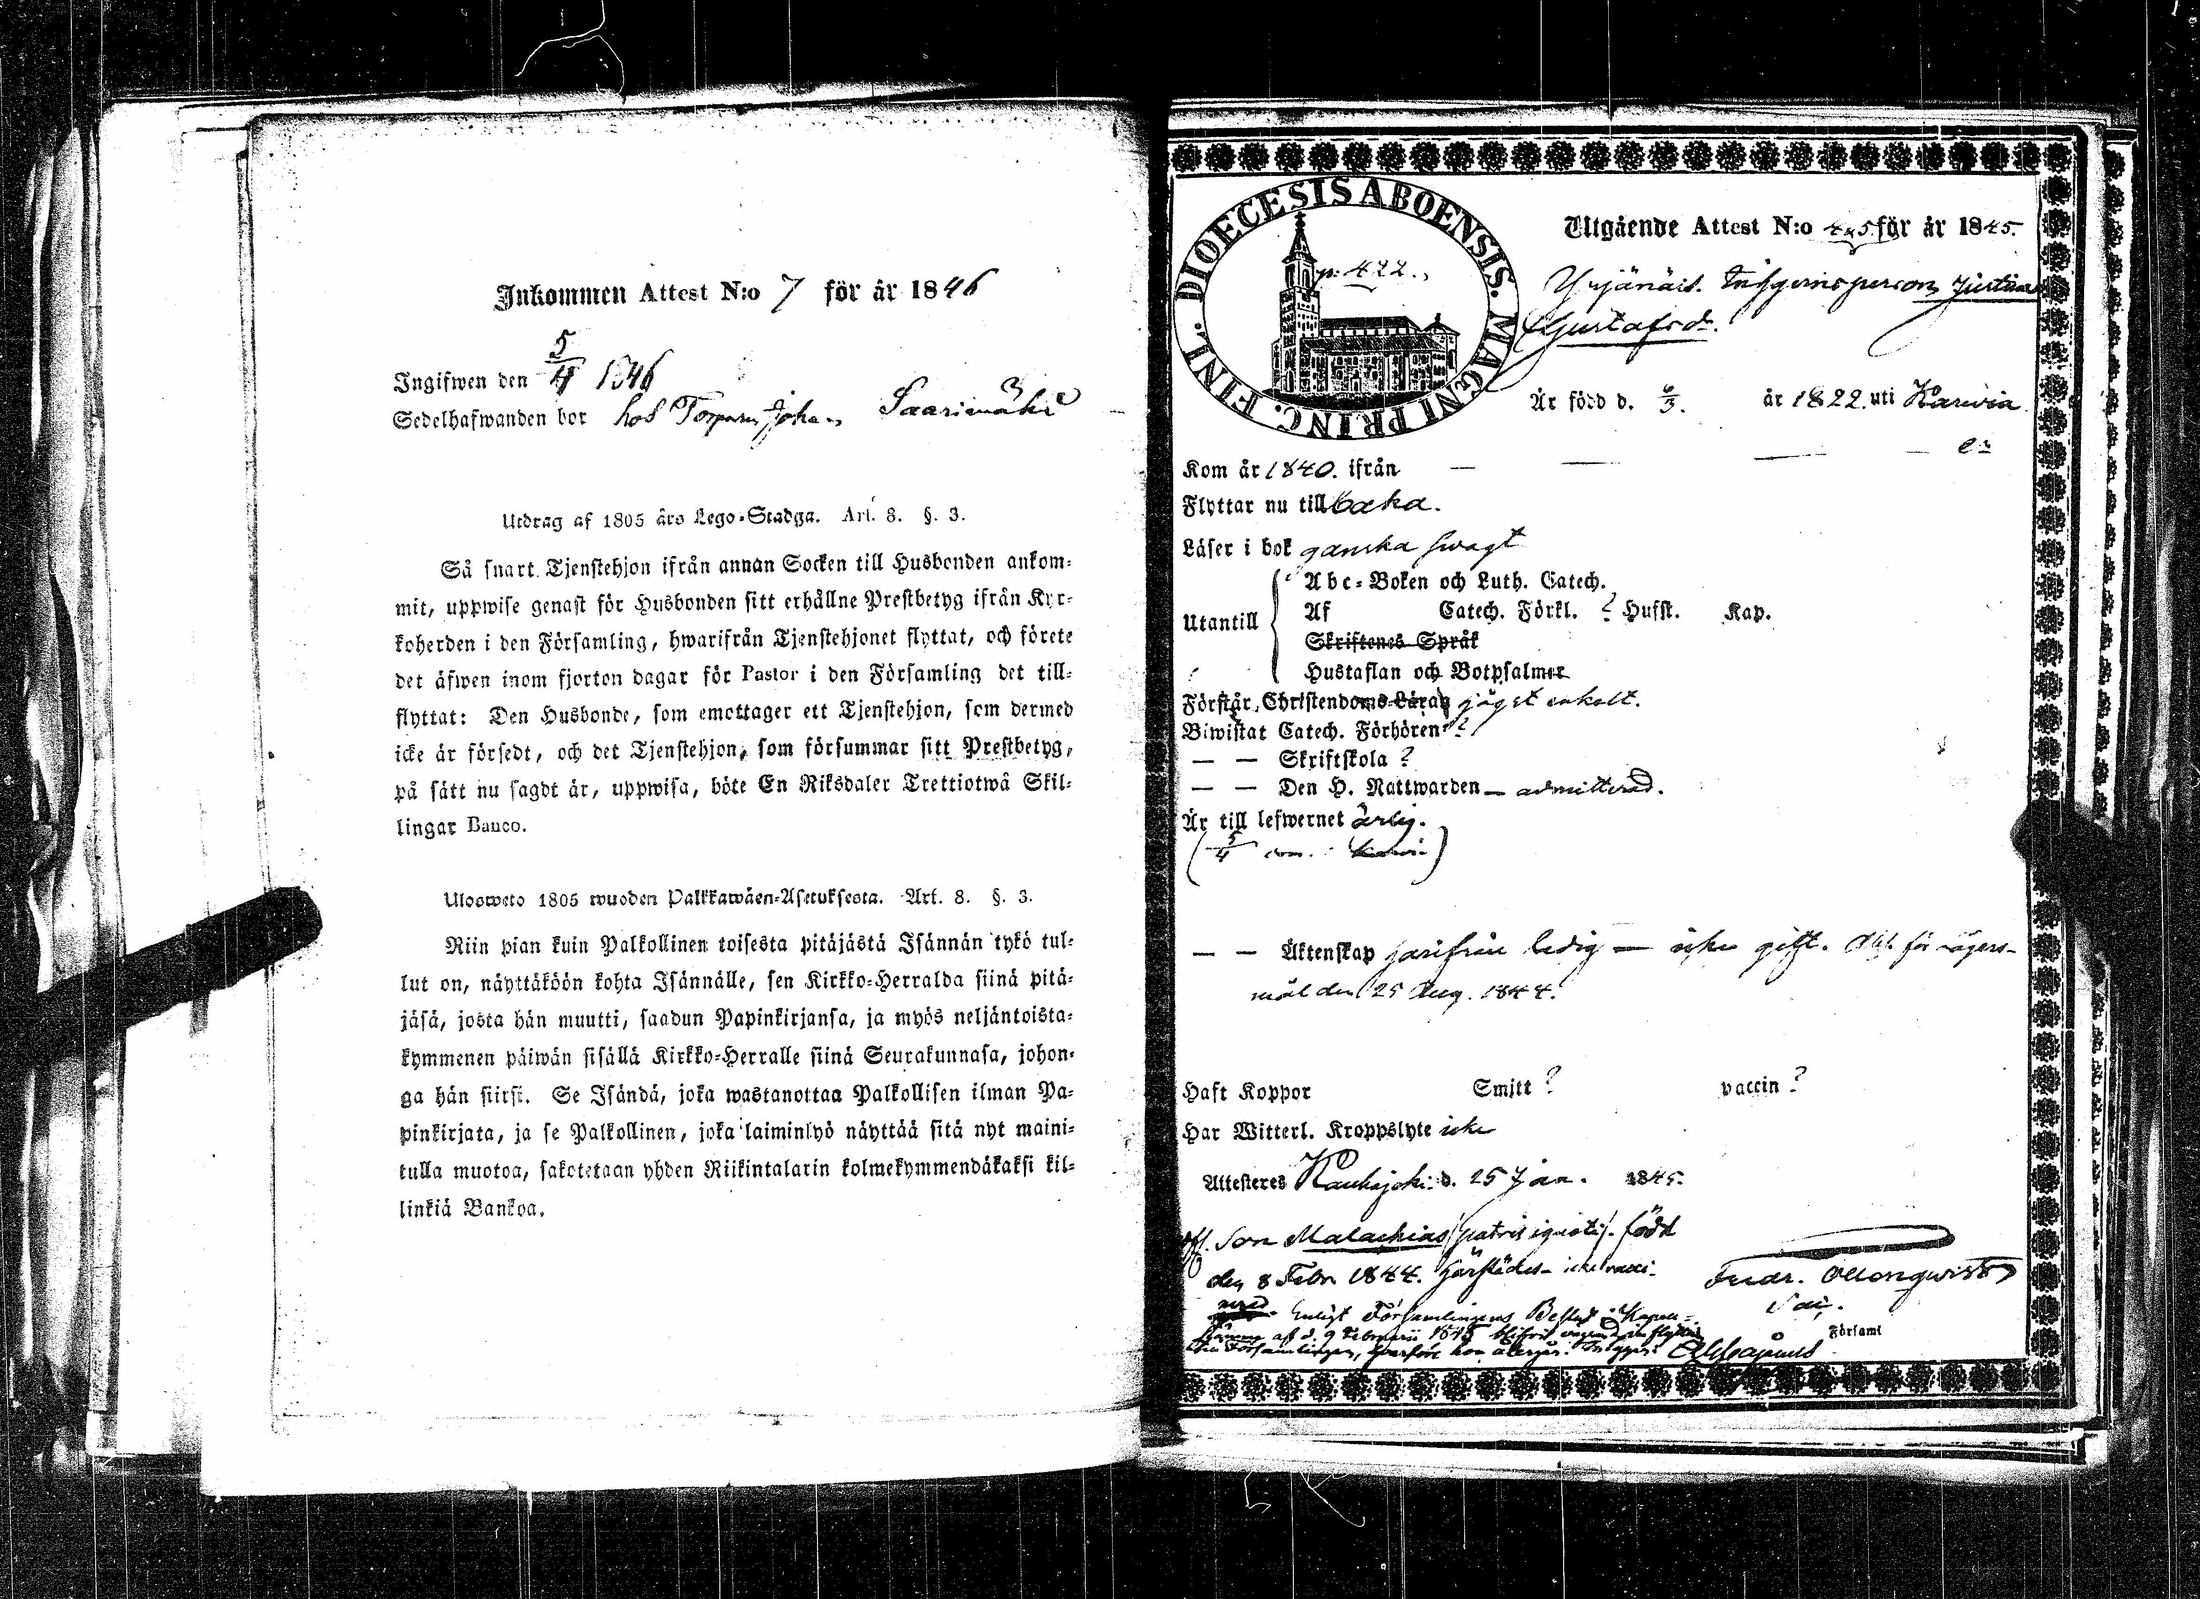 Inkommen Attest N:o 7 för år 1846
Ingifwen den 5/4 1846
Sedelhafwanden bor hos Torparen Johan Saarimäki
Utdrag af 1805 års Lego-Stadga. Art. 8. §. 3.
Så snart Tjenstehjon ifrån annan Socken till Husbonden ankom-
mit, uppwise genast för Husbonden sitt erhållne Prestbetyg ifrån Kyr-
koherden i den Församling, hwarifrån Tjenstehjonet flyttat, och förete
det äfwen inom fjorton dagar för Pastor i den Församling det till-
flyttat: Den Husbonde, som emottager ett Tjenstehjon, som dermed
icke är försedt, och det Tjenstehjon, som försummar sitt Prestbetyg,
på sätt nu sagdt är, uppwisa, böte En Riksdaler Trettiotwå Skil-
lingar Banco.
Ulosweto 1805 wuoden Palkkawäen-Asetuksesta. Art. 8. §. 3.
Niin pian kuin Palkollinen toisesta pitäjästä Isännän tykö tul-
lut on, näyttäköön kohta Isännälle, sen Kirkko-Herralda siinä pitä-
jäsä, josta hän muutti, saadun Papinkirjansa, ja myös neljäntoista-
kymmenen päiwän sisällä Kirkko-Herralle siinä Seurakunnasa, johon-
ga hän siirsi. Se Isändä, joka wastanottaa Palkollisen ilman Pa-
pinkirjata, ja se Palkollinen, joka laiminlyö näyttää sitä nyt maini-
tulla muotoa, sakotetaan yhden Riikintalarin kolmekymmendäkaksi kil-
linkiä Bankoa.
DIOECESIS ABOENSIS. MAGNI PRINC. FINL.
p. 422.
Utgående Attest N:o för år 1845.
Yrjänäis. Inhysmesperson Justina
Gustafsdr.
Är född d. 6/3. år 1822. uti Karvia
Kom år 1840. ifrån — — — —
Flyttar nu till baka.
Läser i bok ganska swagt
Utantill
Abc-Boken och Luth. Catech.
Af Catech. Förkl. ? Hufst. Kap.
Skriftenes Språk
Hustaflan och Botpsalmer
Förstår Christendoms-Läran enkelt.
Biwistat Catech. Förhören ?
— — Skriftskola ?
— — Den H. Nattwarden — admitterad.
Är till lefwernet ärlig.
(5/4
— — Äktenskap härifrån ledig — icke gift. för lägers-
mål den 25 Aug. 1844.
Haft Koppor Smitt ? vaccin ?
Har Witterl. Kroppslyte icke
Attesteres Kauhajoki d. 25 Jan. 1845.
Son Malachias (patris ignoti). född
den 8 Febr 1844. härstädes – icke vacci-
nerad Enligt Församlingens Beslut i
af d. 9 Februarii 1845
Församlingen, hwarföre hon återgår.
Fredr.
Församl